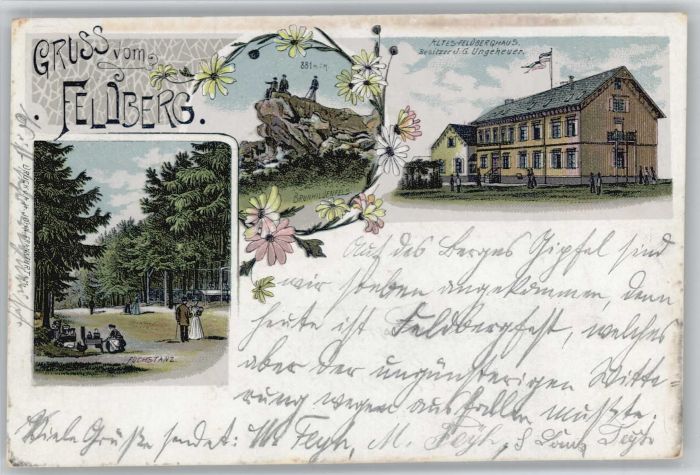 GRUSS vom
FELDBERG.
881 m ü. M.
BRUNHILDENFELS
ALTES-FELDBERGHAUS.
Besitzer J. G. Ungeheuer.
FUCHSTANZ.
Auf des Berges Gipfel sind
wir soeben angekommen, denn
heute ist Feldbergfest, welches
aber der ungünsterigen Witte-
rung wegen ausfallen musste.
Viele Grüße sendet: